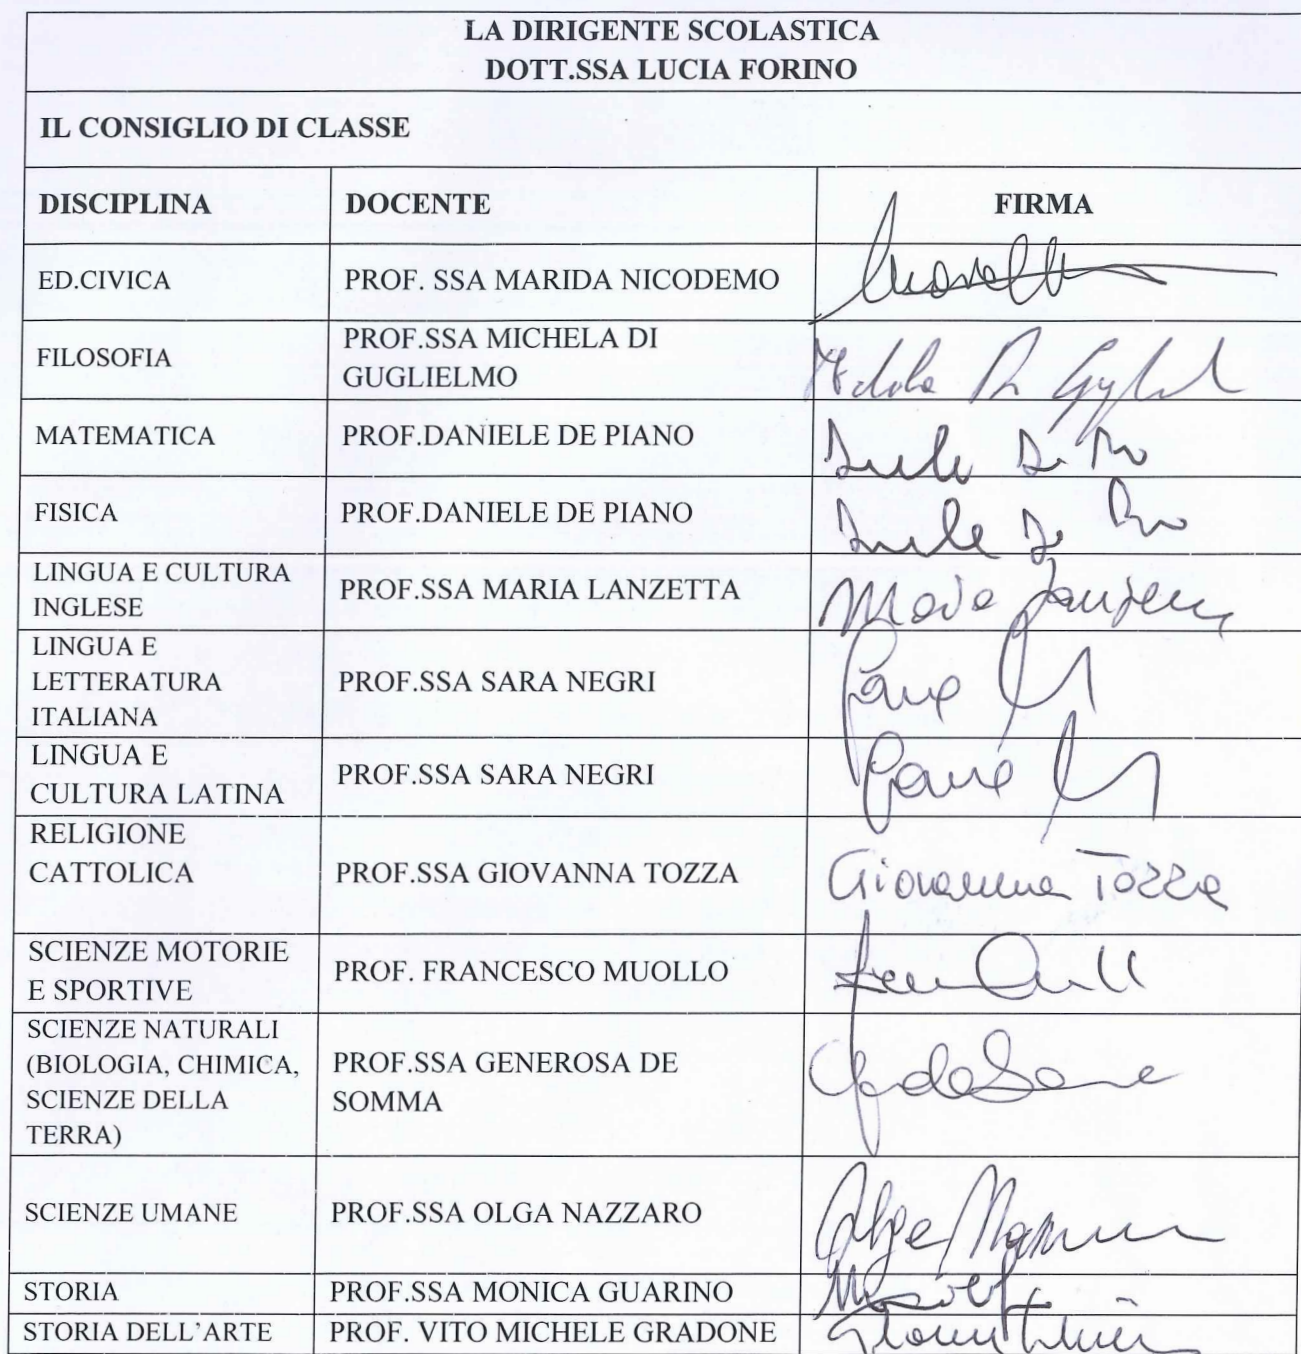 LA DIRIGENTE SCOLASTICA
DOTT.SSA LUCIA FORINO
IL CONSIGLIO DI CLASSE
DISCIPLINA DOCENTE FIRMA
ED.CIVICA PROF. SSA MARIDA NICODEMO
FILOSOFIA PROF.SSA MICHELA DI
GUGLIELMO
MATEMATICA PROF.DANIELE DE PIANO
FISICA PROF.DANIELE DE PIANO
LINGUA E CULTURA
INGLESE PROF.SSA MARIA LANZETTA
LINGUA E
LETTERATURA
ITALIANA PROF.SSA SARA NEGRI
LINGUA E
CULTURA LATINA PROF.SSA SARA NEGRI
RELIGIONE
CATTOLICA PROF.SSA GIOVANNA TOZZA Giovanna Tozza
SCIENZE MOTORIE
E SPORTIVE PROF. FRANCESCO MUOLLO
SCIENZE NATURALI
(BIOLOGIA, CHIMICA,
SCIENZE DELLA
TERRA) PROF.SSA GENEROSA DE
SOMMA
SCIENZE UMANE PROF.SSA OLGA NAZZARO
STORIA PROF.SSA MONICA GUARINO
STORIA DELL'ARTE PROF. VITO MICHELE GRADONE